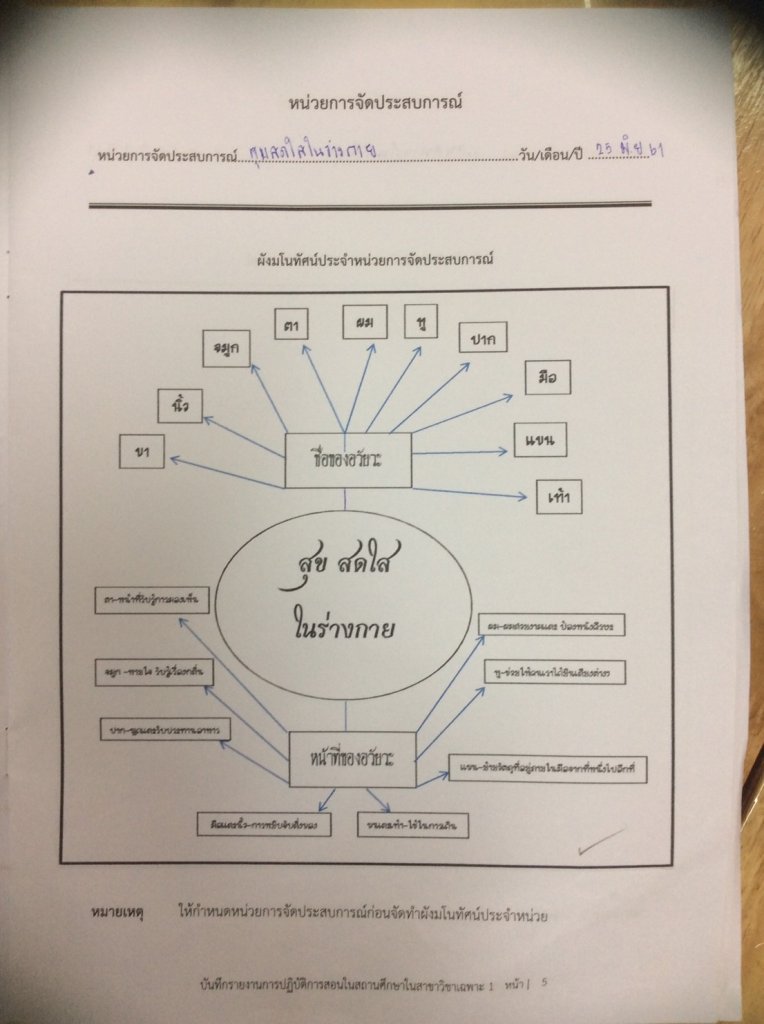 หน่วยการจัดประสบการณ์
หน่วยการจัดประสบการณ์ สุขสดใสในร่างกาย วัน/เดือน/ปี 25 มิ.ย. 61
ผังมโนทัศน์ประจำหน่วยการจัดประสบการณ์
ตา
ผม
หู
ปาก
จมูก
มือ
นิ้ว
แขน
ขา
เท้า
ชื่อของอวัยวะ
สุข สดใส
ในร่างกาย
ตา-หน้าที่รับรู้การมองเห็น
ผม-ผมสวยงามและ ป้องหนังศีรษะ
จมูก -หายใจ รับรู้เรื่องกลิ่น
หู-ช่วยให้คนเราได้ยินเสียงต่างๆ
ปาก-พูดและรับประทานอาหาร
หน้าที่ของอวัยวะ
แขน-ย้ายวัตถุที่อยู่ภายในมือจากที่หนึ่งไปอีกที่
มือและนิ้ว-การหยิบจับสิ่งของ
ขาและเท้า-ใช้ในการเดิน
หมายเหตุ ให้กำหนดหน่วยการจัดประสบการณ์ก่อนจัดทำผังมโนทัศน์ประจำหน่วย
บันทึกรายงานการปฏิบัติการสอนในสถานศึกษาในสาขาวิชาเฉพาะ 1 หน้า | 5